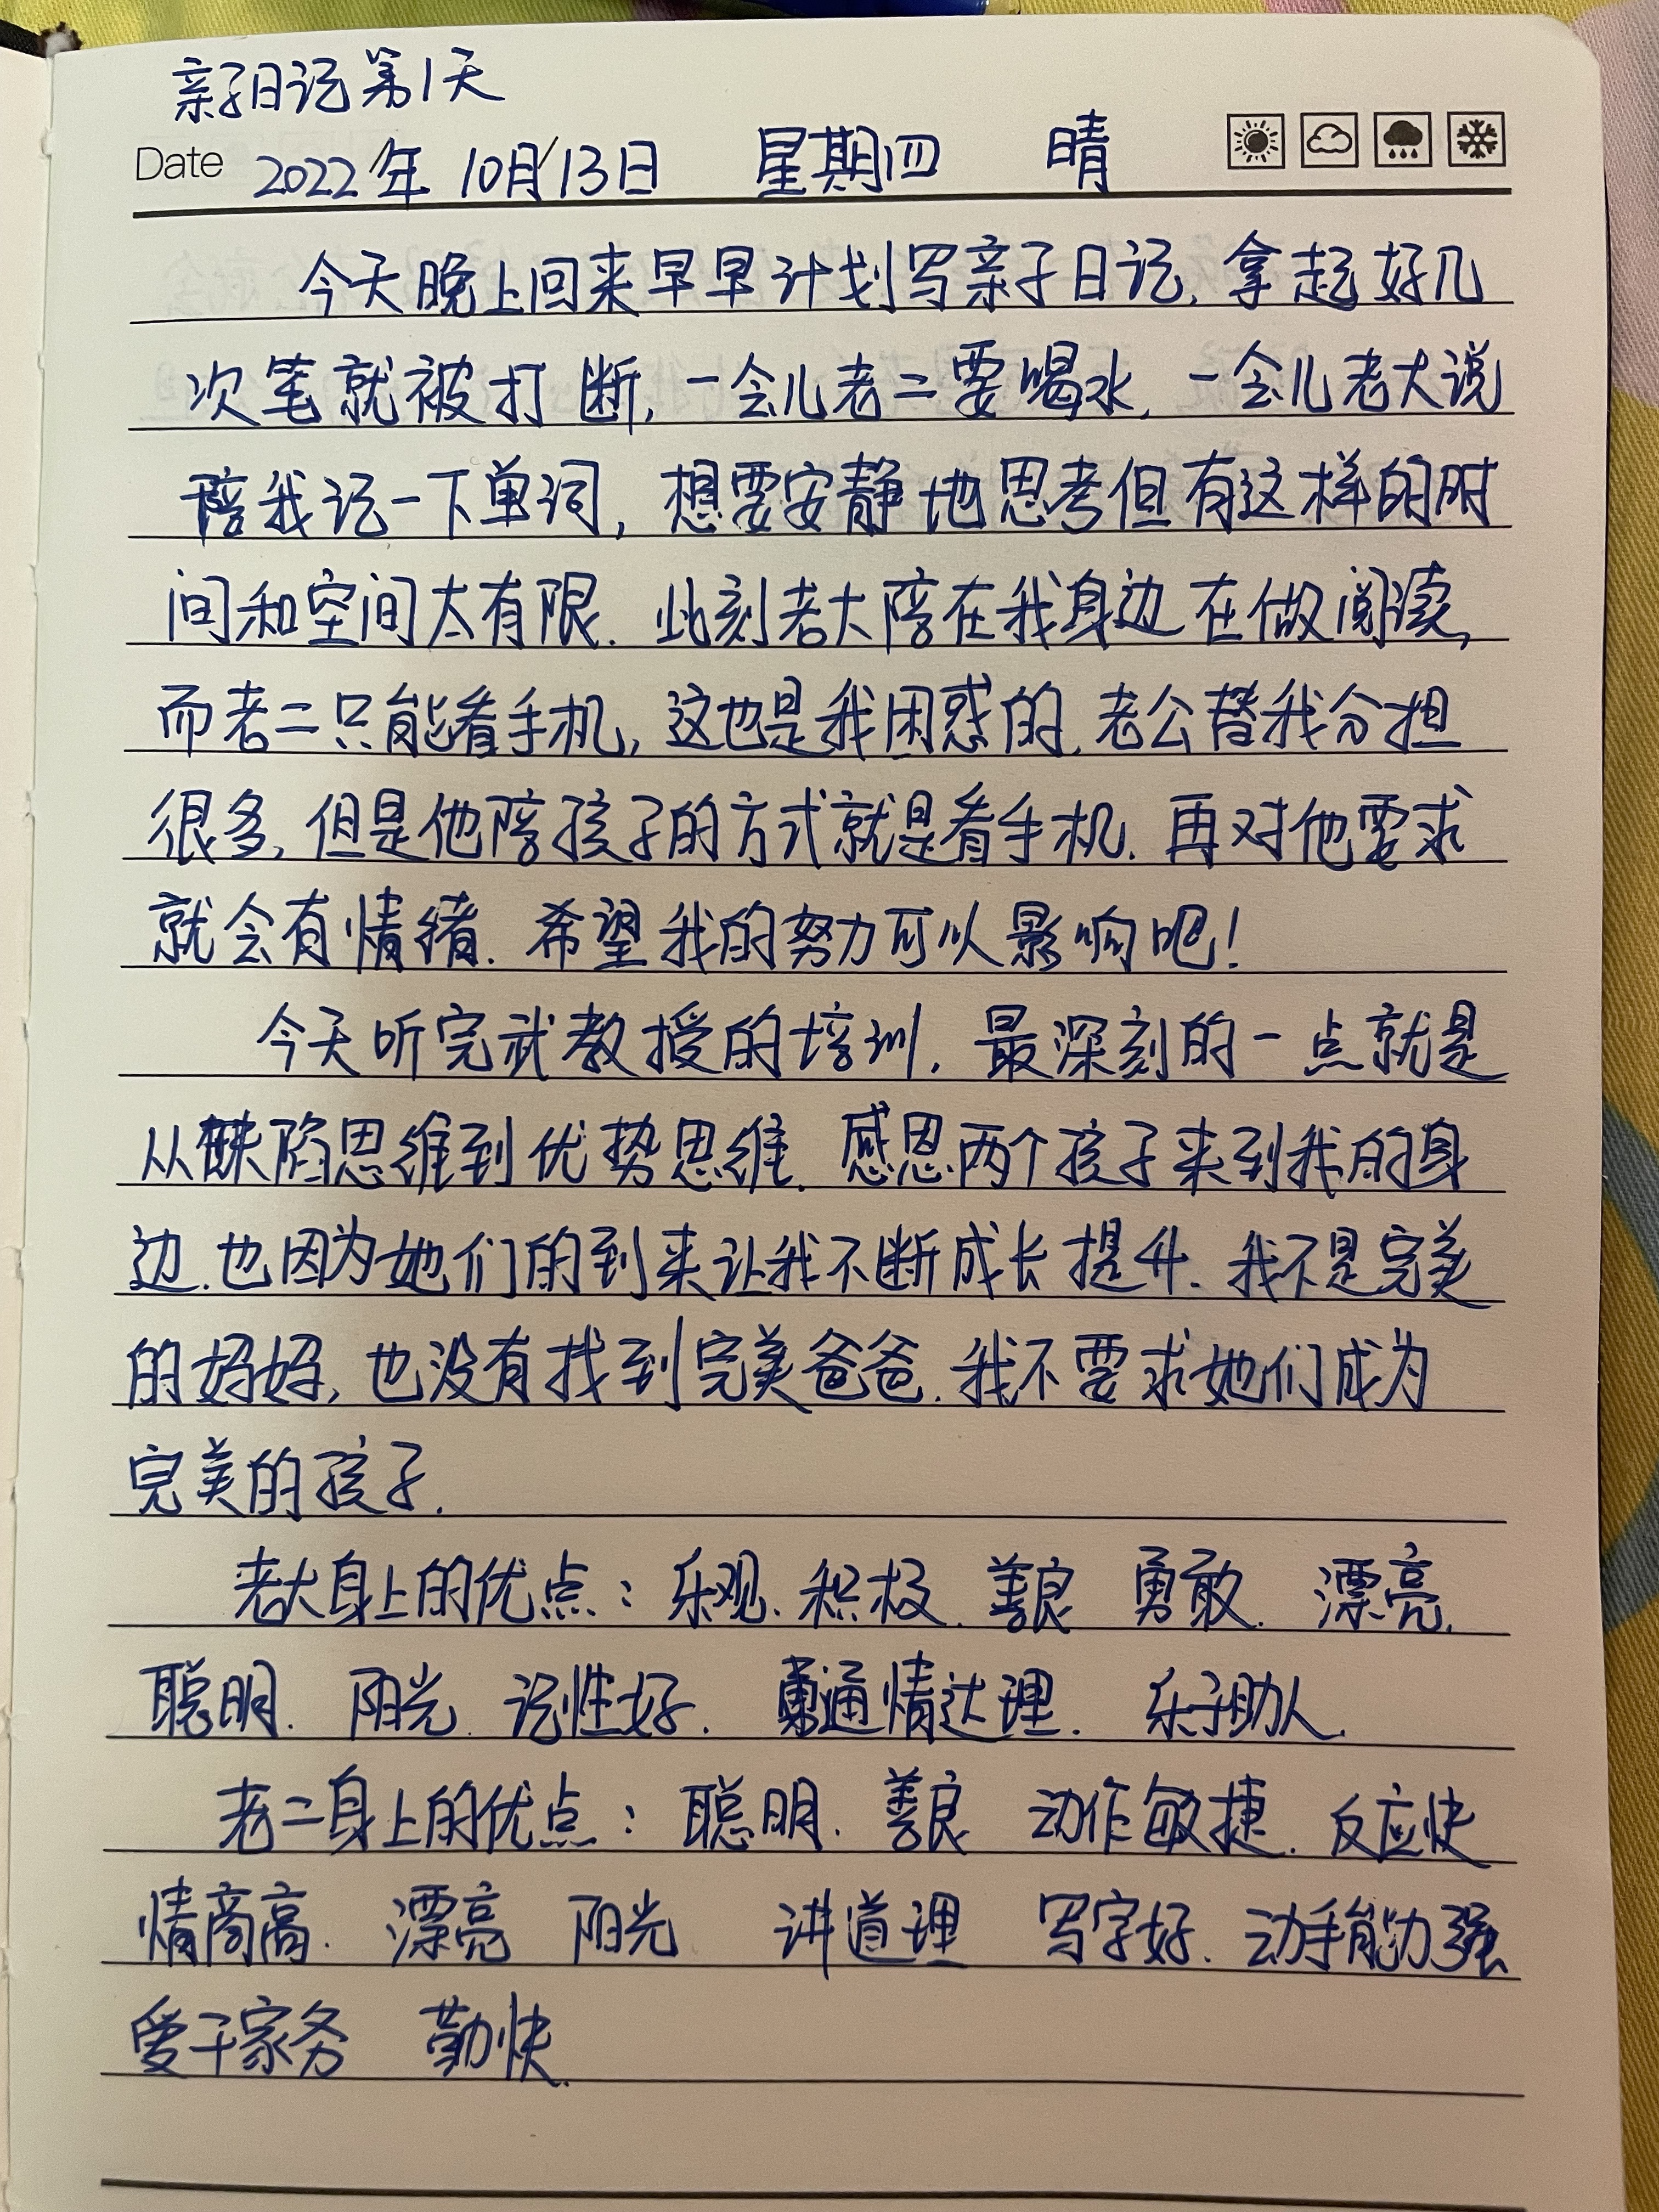 亲子日记第1天
Date 2022年 10月13日 星期四 晴
今天晚上回来早早计划写亲子日记,拿起好几
次笔就被打断,一会儿老二要喝水,一会儿老大说
陪我记一下单词,想要安静地思考但有这样的时
间和空间太有限.此刻老大陪在我身边在做阅读,
而老二只能看手机,这也是我困惑的.老公替我分担
很多,但是他陪孩子的方式就是看手机.再对他要求
就会有情绪.希望我的努力可以影响吧!
今天听完武教授的培训,最深刻的一点就是
从缺陷思维到优势思维.感恩两个孩子来到我的身
边.也因为她们的到来让我不断成长提升.我不是完美
的妈妈,也没有找到完美爸爸.我不要求她们成为
完美的孩子.
老大身上的优点:乐观.积极.善良 勇敢.漂亮.
聪明.阳光.记性好.通情达理.乐于助人.
老二身上的优点:聪明.善良 动作敏捷.反应快
情商高.漂亮 阳光 讲道理 写字好.动手能力强
爱干家务 勤快.